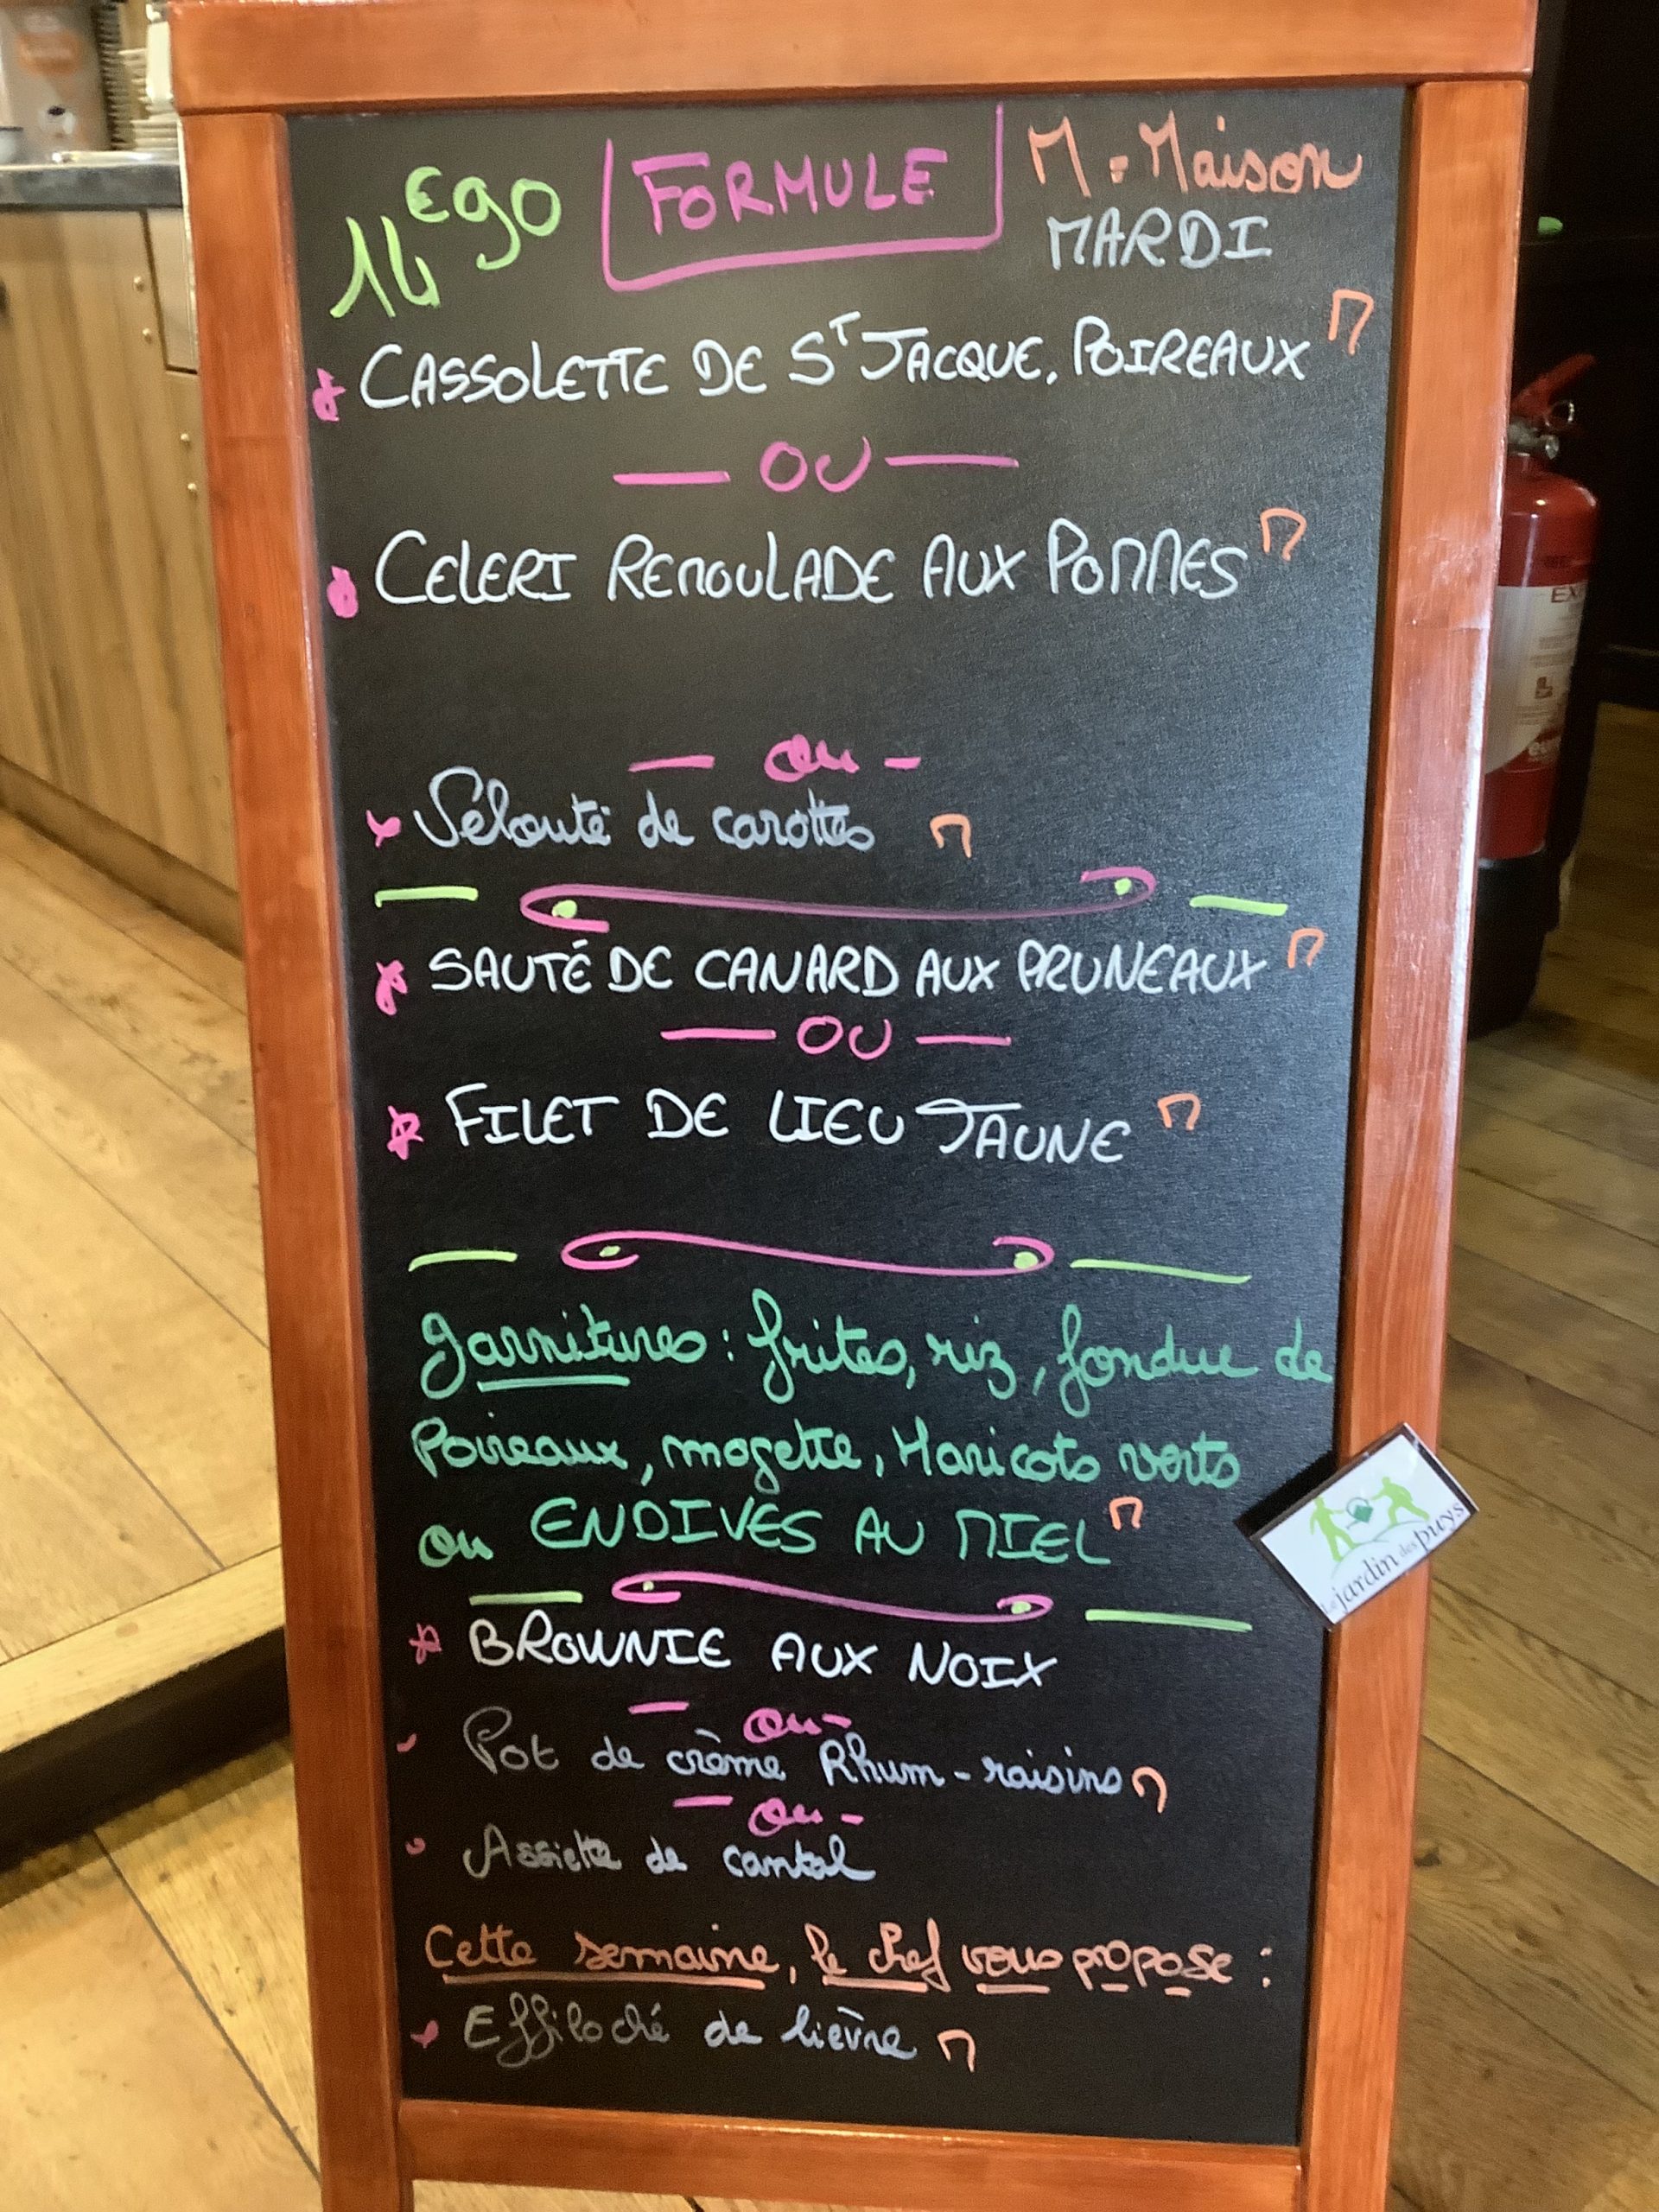 14€90 FORMULE M = Maison
MARDI
CASSOLETTE DE ST JACQUE, POIREAUX M
OU
CELERI REMOULADE AUX POMMES M
ou
Vélouté de carottes M
SAUTÉ DE CANARD AUX PRUNEAUX M
OU
FILET DE LIEU JAUNE M
garnitures : frites, riz, fondue de
Poireaux, mogette, Haricots verts
ou ENDIVES AU MIEL M
BROWNIE AUX NOIX
ou
Pot de crème Rhum-raisins M
ou
Assiette de cantal
Cette semaine, le chef vous propose :
Effiloché de lièvre M
le jardin des puys